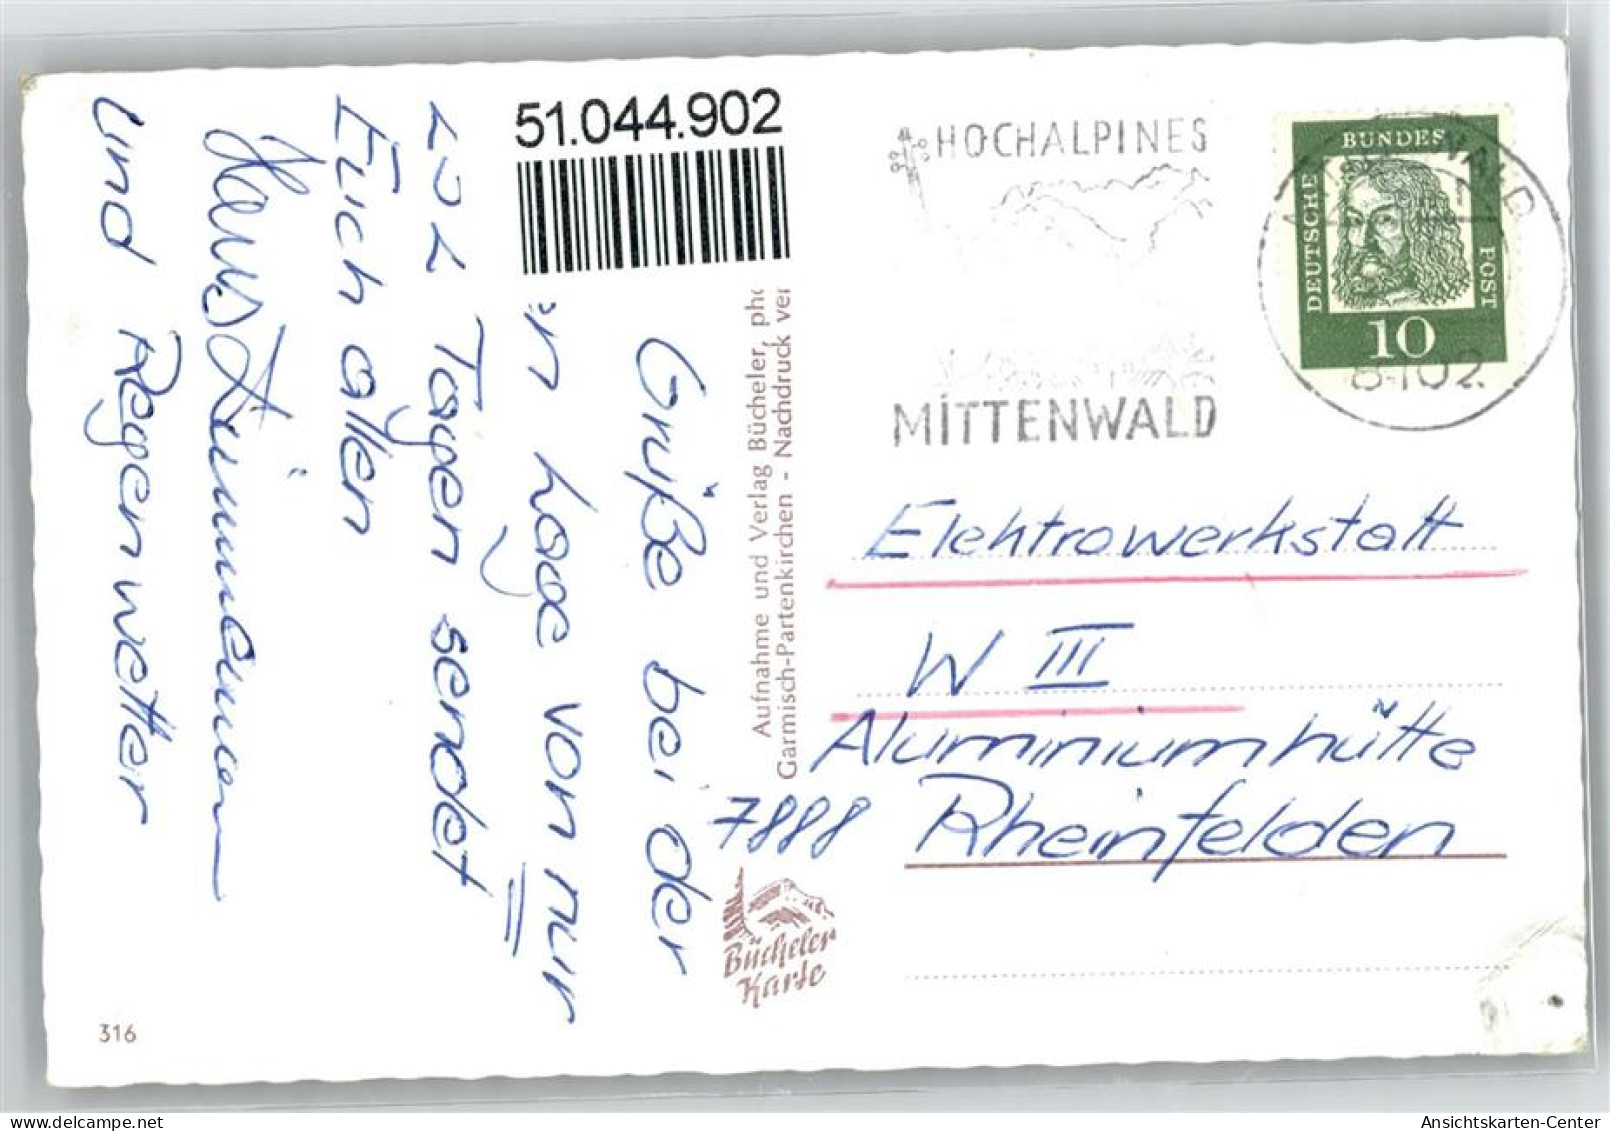 51.044.902
HOCHALPINES
MITTENWALD
DEUTSCHE BUNDESPOST
10
8102
Grüße bei der
Lage von nur
Tagen sendet
Euch allen
Hans
und Regenwetter
Aufnahme und Verlag Bücheler,
Garmisch-Partenkirchen - Nachdruck
Elektrowerkstatt
W III
Aluminiumhütte
7888 Rheinfelden
Bücheler
Karte
316
www.delcampe.net
Ansichtskarten-Center